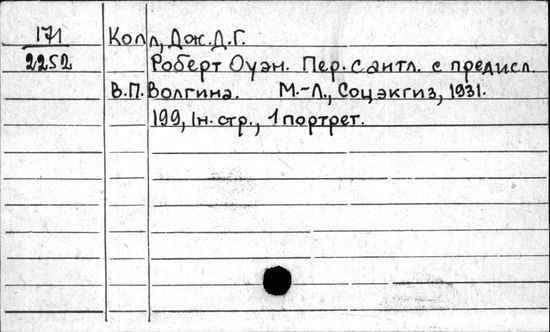 171 Колл, Дж.Д.Г.
2252 Роберт Оуэн. Пер. с англ. с предисл.
В.П. Волгина. М.-Л., Соцэкгиз, 1931.
199, 1н. стр., 1 портрет.